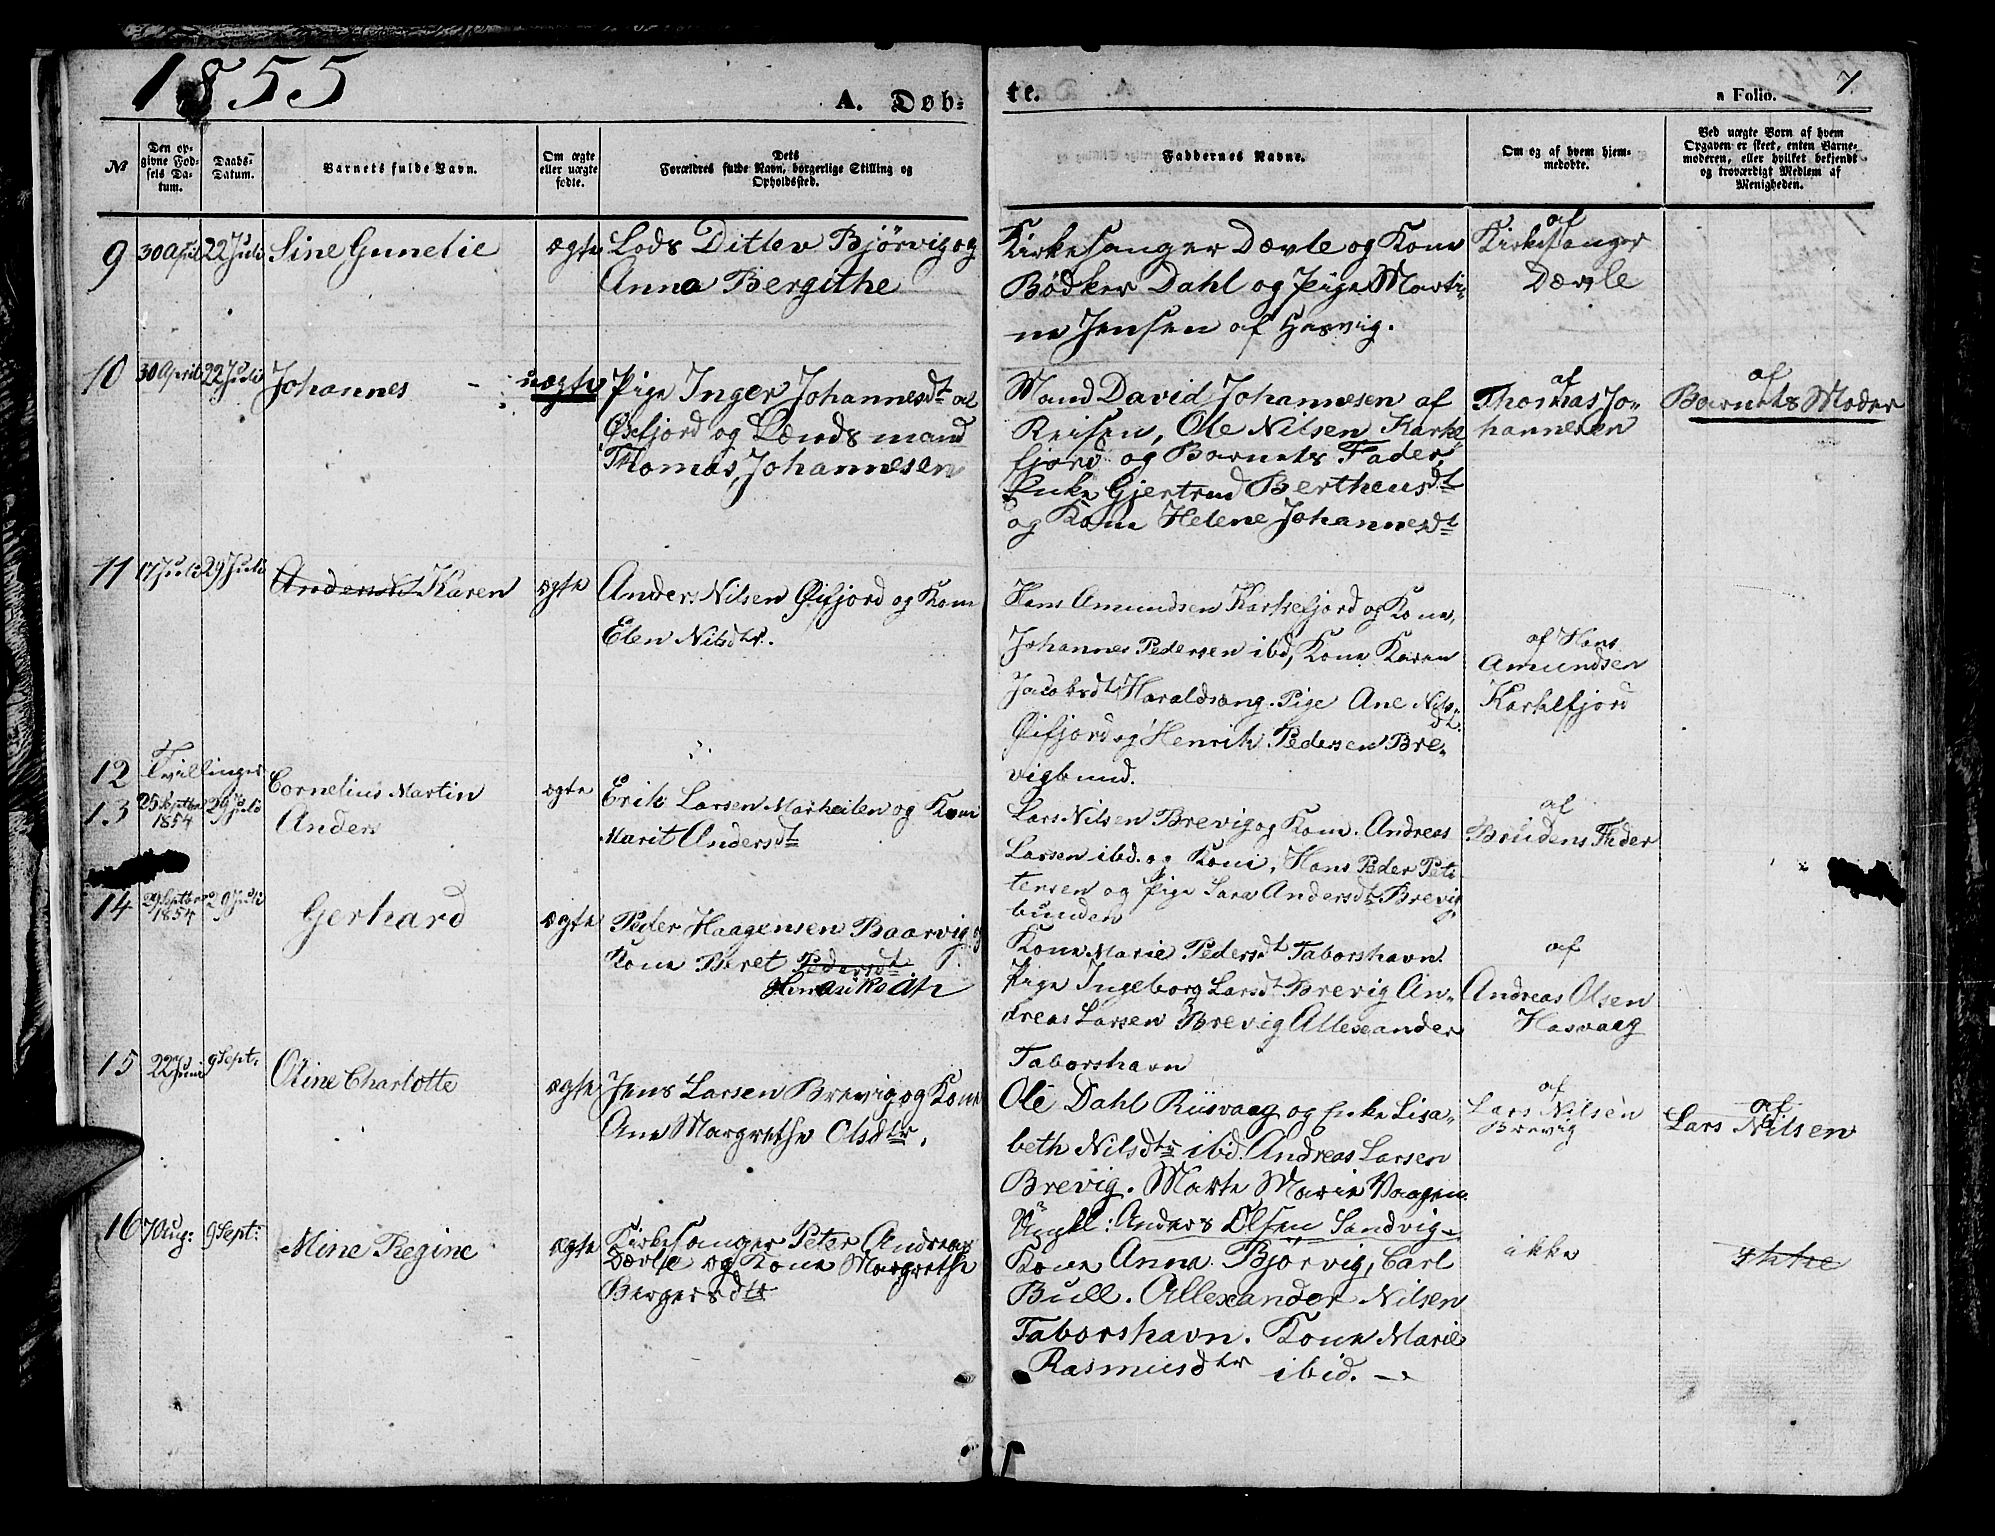 1855
A. Døb-
te.
a Folio.
7.
№
Den op-
givne Fød-
sels Da-
tum.
Daabs-
Datum.
Barnets fulde Navn.
Om ægte
eller uægte
fødte.
Dets
Forældres fulde Navn, borgerlige Stilling og
Opholdssted.
Faddernes Navne.
Om og af hvem hjem-
medøbte.
Ved uægte Børn af hvem
Opgaven er skeet, enten Barne-
moderen, eller hvilket bekjendt
og troværdigt Medlem af
Menigheden.
9 30 April 22 Juli Sine Gunelie ægte Lods Ditlev Bjørvig og
Anna Bergithe
Kirkesanger Dævle og Kone
Bødker Dahl og Pige Marti-
ne Jensen af Hasvig.
af
Kirkesanger
Dævle
10 30 April 22 Juli Johannes - uægte Pige Inger Johannesdt af
Øxfjord og Lændsmand
Thomas Johannesen
Mand David Johannesen af
Reisen, Ole Nilsen Karkel
fjord og Barnets Fader
Enke Gjertrud Bertheusdt
og Kone Helene Johannesdt
af
Thomas Jo-
hannesen
af
Barnets Moder
11 17 Juli 29 Juli Andersdt Karen ægte Anders Nilsen Øifjord og Kone
Elen Nilsdtr.
Hans Amundsen Karkefjord og Kone,
Johannes Pedersen ibd, Kone Karen
Jacobsdt Haraldsang. Pige Ane Nils-
dt
Øifjord og Henrik Pedersen Bre-
vigbund.
af Hans
Amundsen
Karkefjord
12 Tvillinger Cornelius Martin
13 25 Septbr 1854 29 Juli Anders ægte Erik Larsen Marheilen og Kone
Marit Andersdt
Lars Nilsen Brevig og Kone. Andreas
Larsen ibd. og Kone, Hans Peder Pet-
tersen og Pige Sara Andersdt Brevig
bunden
af
Brudens Fader
14 29 Septbr 1854 29 Juli Gerhard ægte Peder Haagensen Baarvig og
Kone Beret Pedersdt.
Henrikedtr
Kone Marie Pedersdt Taborshavn.
Pige Ingeborg Larsdt Brevig An-
dreas Larsen Brevig Allexander
Taborshavn
af
Andreas Olsen
Hasvaag
15 22 Juni 9 Sept: Oline Charlotte ægte Jens Larsen Brevig og Kone
Ane Margrethe Olsdtr.
Ole Dahl Riisvaag og Enke Lisa-
beth Nilsdtr ibd. Andreas Larsen
Brevig. Marte Marie Vaagen.
Ungkl: Anders Olsen Sandvig.
af
Lars Nilsen
Brevig
af
Lars Nilsen
16 7 Aug: 9 Sept: Mine Regine ægte Kirkesanger Peter Andreas
Dævle og Kone Margrethe
Bergersdtr
Kone Anna Bjørvig, Carl
Bull. Allexander Nilsen
Taborshavn. Kone Marie
Rasmusdtr ibid.
ikke
ikke